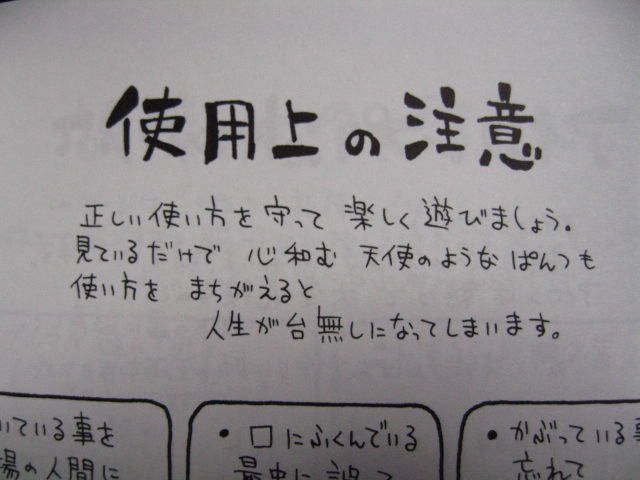 使用上の注意
正しい使い方を守って 楽しく遊びましょう。
見ているだけで 心和む 天使のような ぱんつも
使い方を まちがえると
人生が台無しになってしまいます。
いている事を
場の人間に
・口にふくんでいる
最中に誤って
・かぶっている事
忘れて